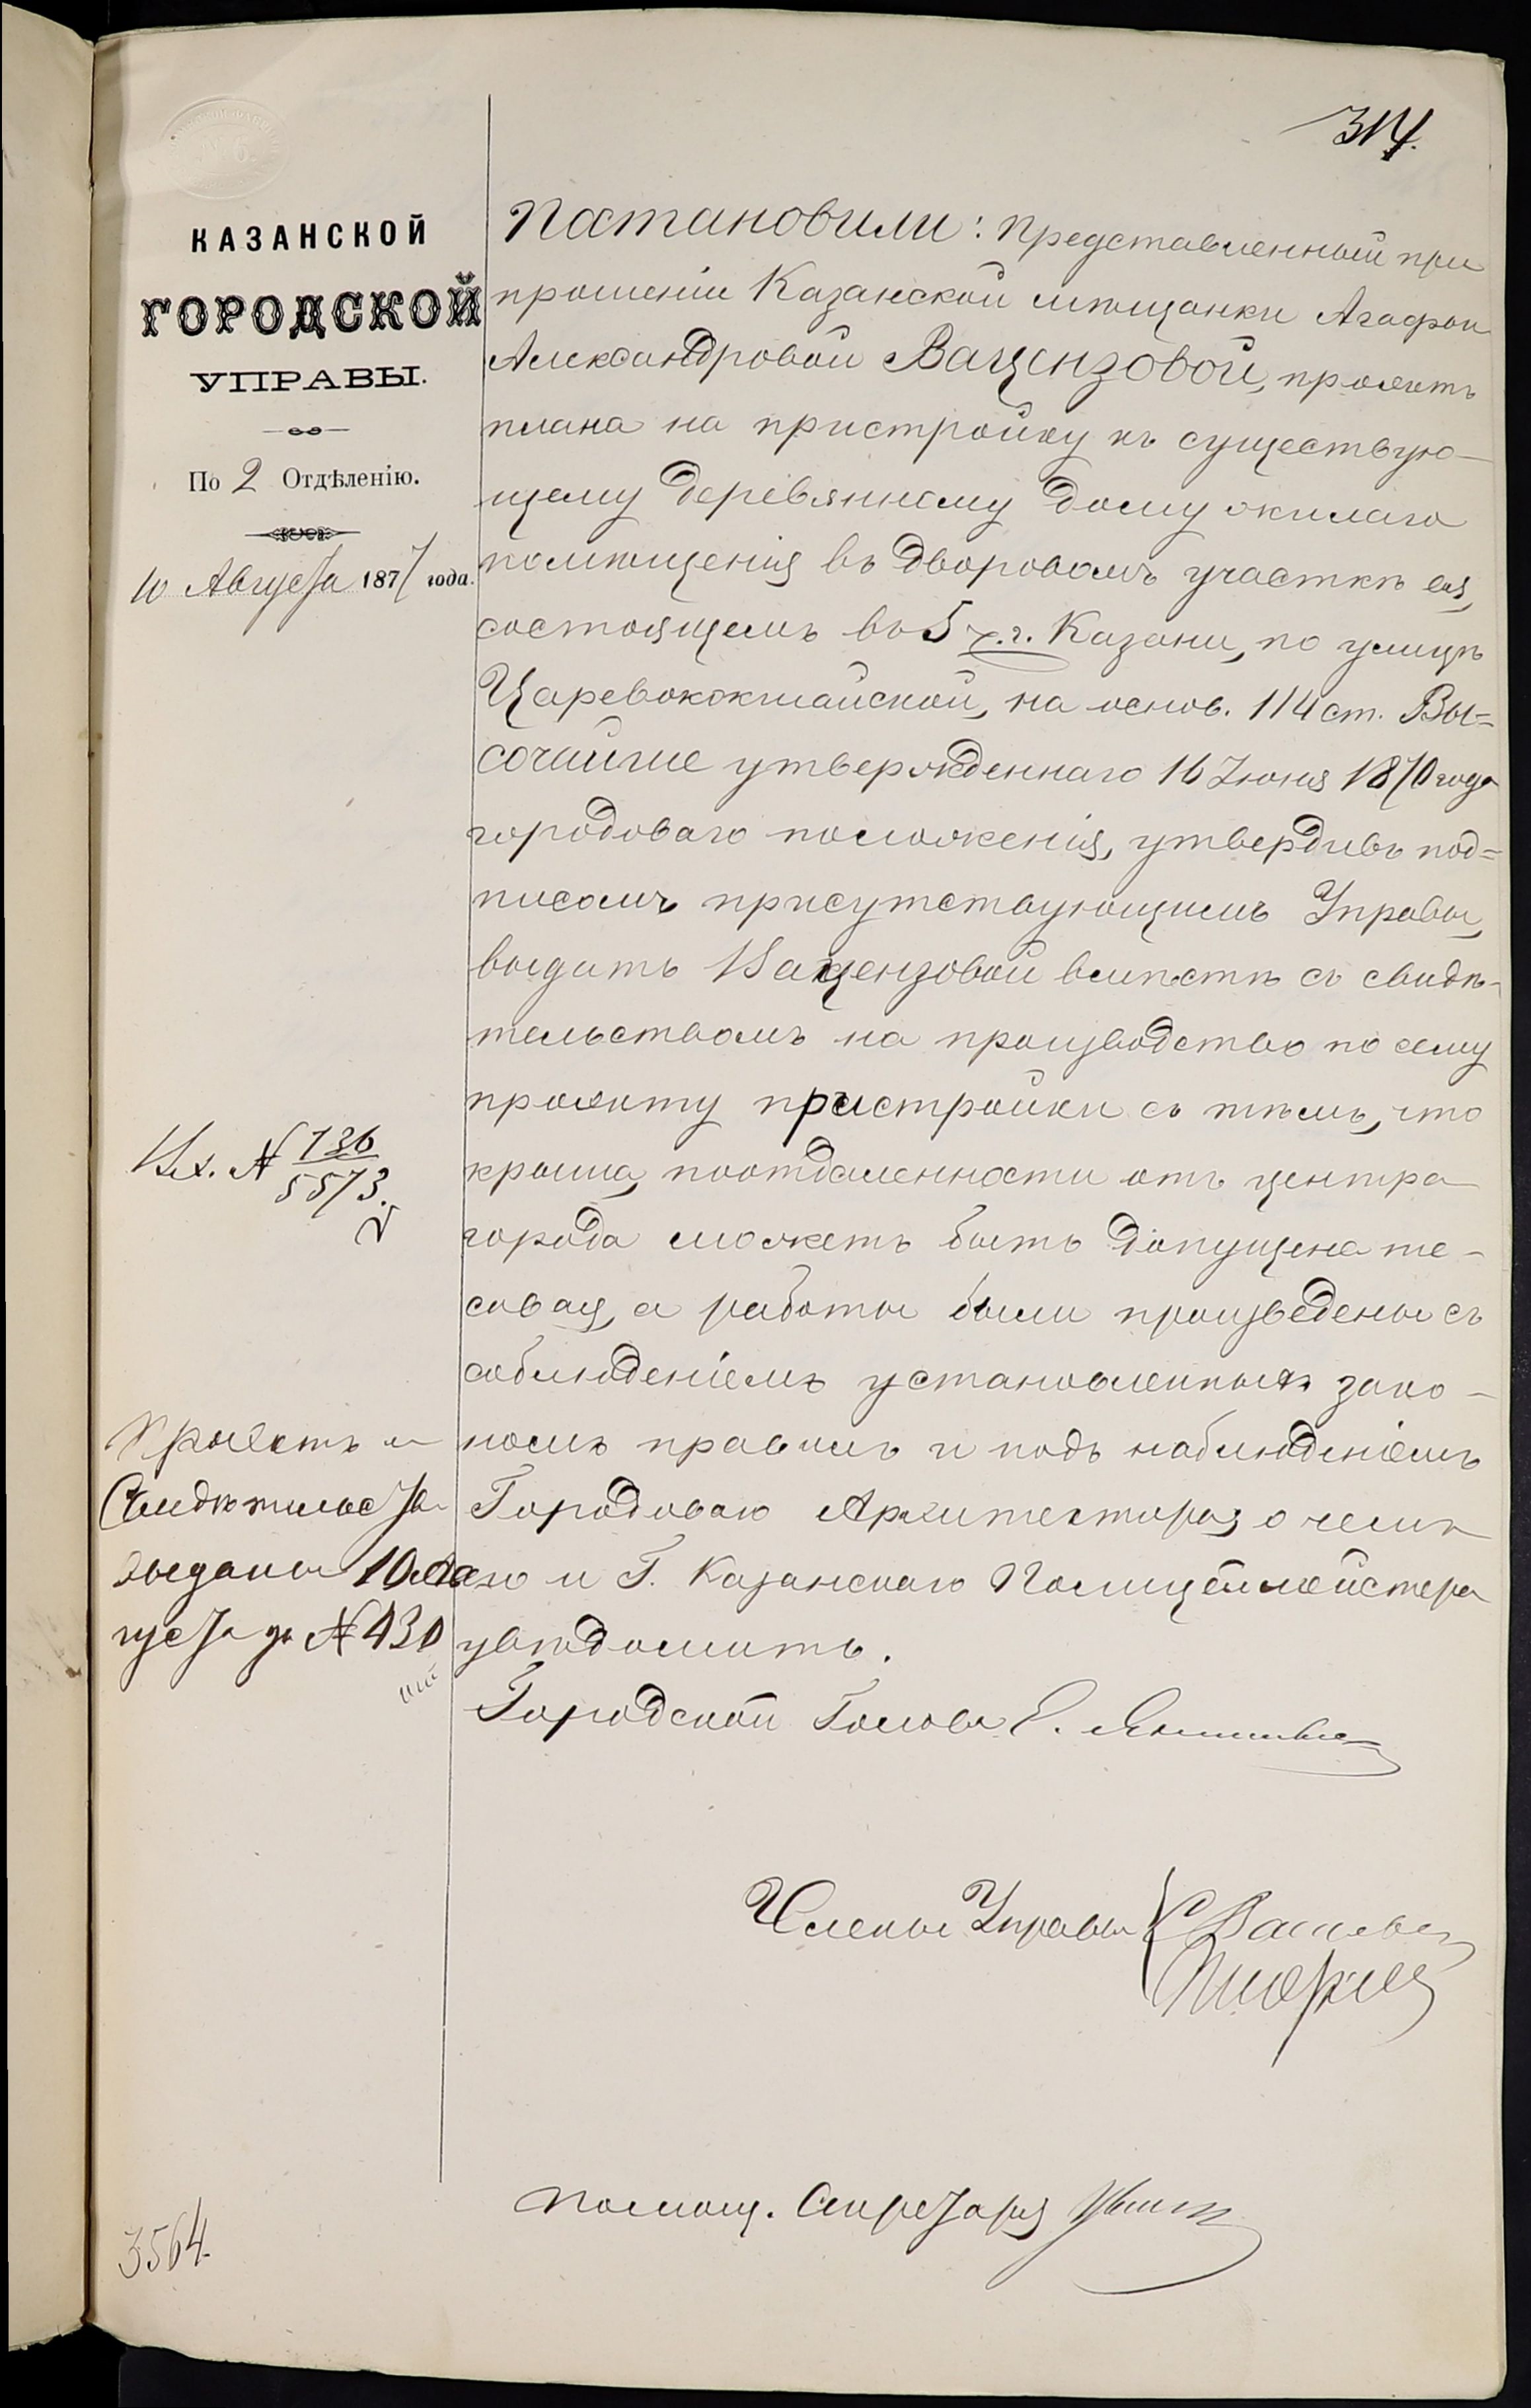 314.
КАЗАНСКОЙ
ГОРОДСКОЙ
УПРАВЫ.
По 2 Отдѣленію.
10 Августа 1877 года.
Постановили: Представленный при
прошеніи Казанской мѣщанки Агафьи
Александровой Вацензовой, проектъ
плана на пристройку къ существую-
щему деревянному дому жилаго
помѣщенія въ дворовомъ участкѣ ея,
состоящемъ въ 5 ч. г. Казани, по улицѣ
Царевококшайской, на основ. 114 ст. Вы=
сочайше утвержденнаго 16 Іюня 1870 года
городоваго положенія, утвердивъ под=
писомъ присутствующимъ Управы,
выдать Вацензовой вмѣстѣ съ свидѣ-
тельствомъ на производство по сему
проэкту пристройки съ тѣмъ, что
крыша, поотдаленности отъ центра
города можетъ быть допущена те-
совая, а работы были произведены съ
соблюденіемъ установленныхъ зако-
номъ правилъ и подъ наблюденіемъ
Городоваго Архитектора, о чемъ
его и Г. Казанскаго Полицеймейстера
увѣдомить.
Вх. № 136
5573.
Проектъ и
Свидѣтельства
выданы 10 Ав
густа за № 430
Городской Голова Е. Янишевс
Члены Управы С Васильев
Помощ. Секретаря
3564.